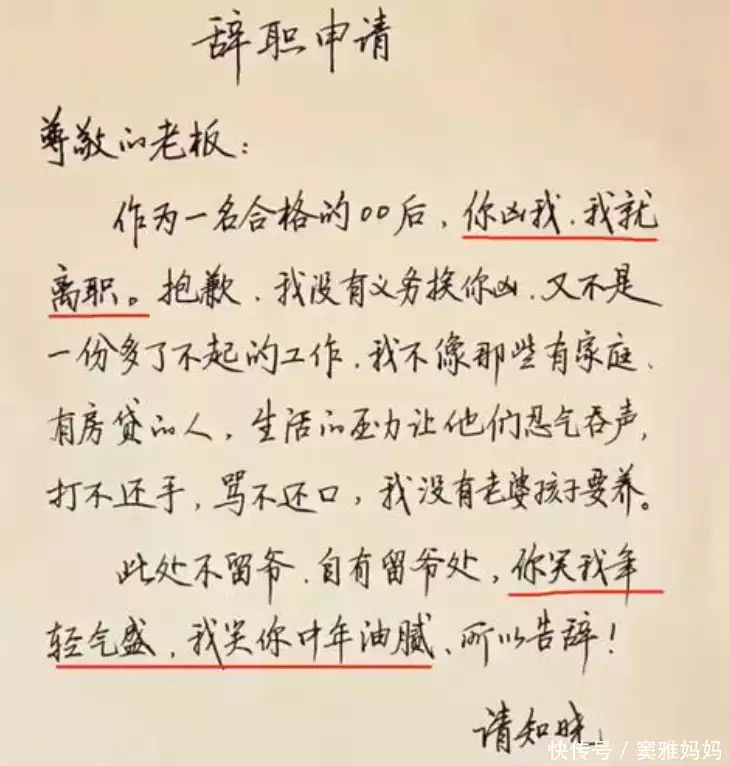 辞职申请
尊敬的老板：
作为一名合格的00后，你凶我，我就
离职。抱歉，我没有义务挨你凶，又不是
一份多了不起的工作，我不像那些有家庭、
有房贷的人，生活的压力让他们忍气吞声，
打不还手，骂不还口，我没有老婆孩子要养。
此处不留爷，自有留爷处，你笑我年
轻气盛，我笑你中年油腻、所以告辞！
请知晓
快传号/窦雅妈妈